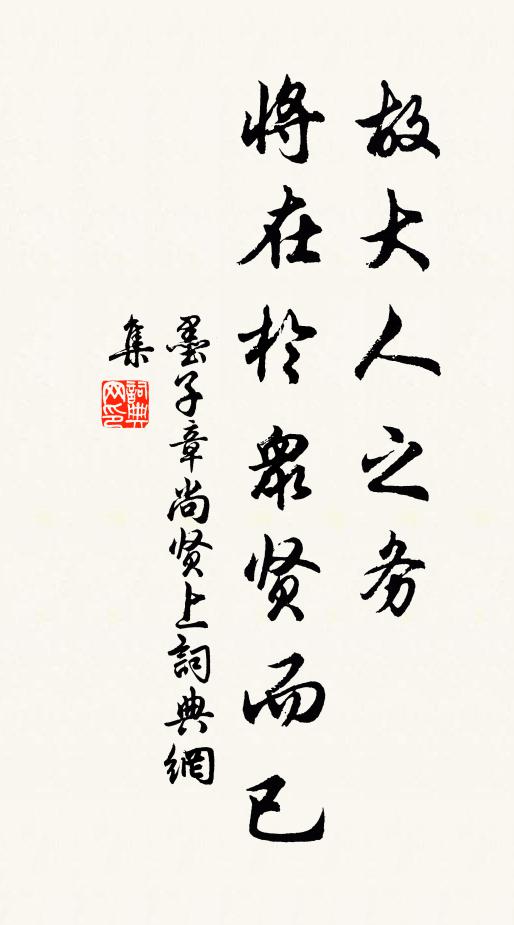 故大人之务
将在於眾贤而已
墨子章尚贤上詞典網
集
詞典
网印